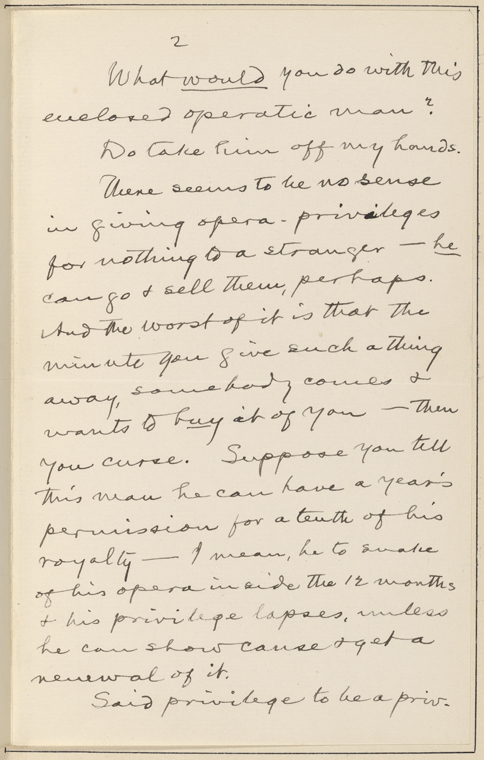 2
What would you do with this
enclosed operatic man?
Do take him off my hands.
There seems to be no sense
in giving opera-privileges
for nothing to a stranger — he
can go & sell them, perhaps.
And the worst of it is that the
minute you give such a thing
away, somebody comes &
wants to buy it of you — then
you curse. Suppose you tell
this man he can have a year's
permission for a tenth of his
royalty — I mean, he to make
of his opera inside the 12 months
& his privilege lapses, unless
he can show cause & get a
renewal of it.
Said privilege to be a priv-